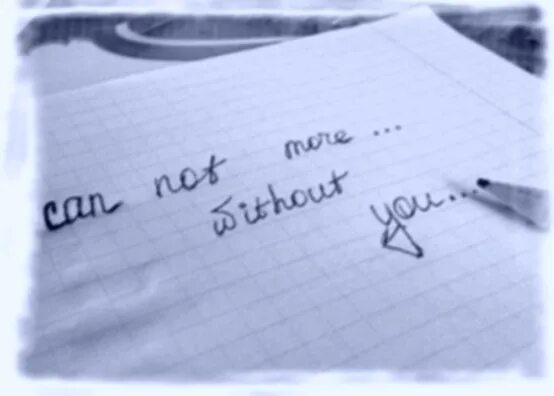 can not more ...
without you...